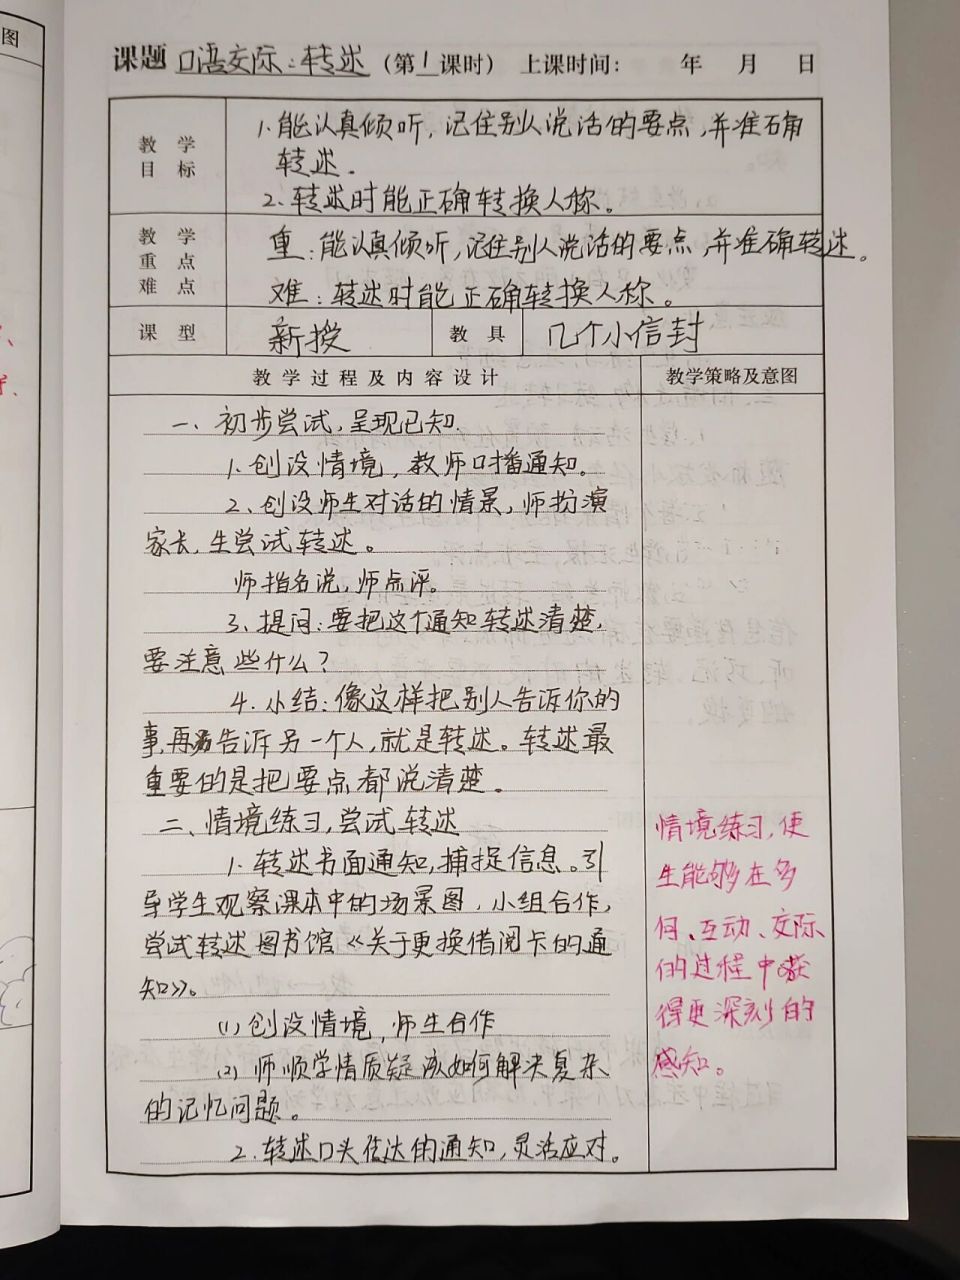 图
课题 口语交际:转述 (第1课时) 上课时间: 年 月 日
教学目标
1.能认真倾听,记住别人说话的要点,并准确
转述.
2.转述时能正确转换人称。
教学重点难点
重:能认真倾听,记住别人说话的要点,并准确转述。
难:转述时能正确转换人称。
课型 新授 教具 几个小信封
教学过程及内容设计 教学策略及意图
一、初步尝试,呈现已知.
1.创设情境,教师口播通知。
2、创设师生对话的情景,师扮演
家长,生尝试转述。
师指名说,师点评。
3、提问:要把这个通知转述清楚,
要注意些什么?
4.小结:像这样把别人告诉你的
事,再告诉另一个人,就是转述。转述最
重要的是把要点都说清楚。
二、情境练习,尝试转述
1.转述书面通知,捕捉信息。引
导学生观察课本中的场景图,小组合作,
尝试转述图书馆《关于更换借阅卡的通
知》。
(1)创设情境,师生合作
(2)师顺学情质疑该如何解决复杂
的记忆问题。
2.转述口头传达的通知,灵活应对。
情境练习,使
生能够在多
向、互动、交际
的过程中获
得更深刻的
感知。